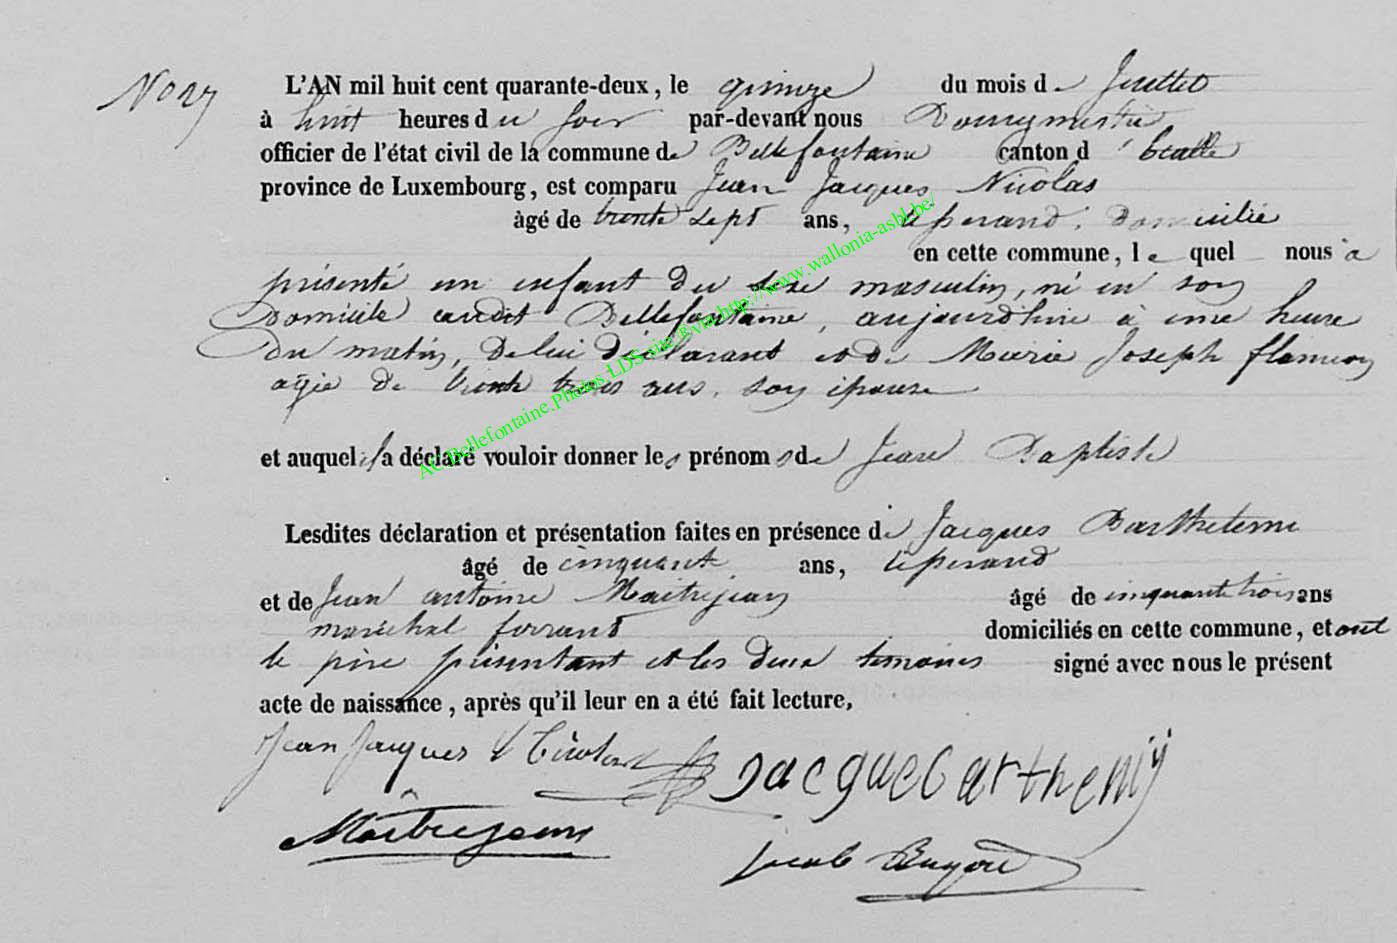 No 27
L'AN mil huit cent quarante-deux, le quinze du mois de Juillet
à huit heures du soir par-devant nous Bourgmestre
officier de l'état civil de la commune de Bellefontaine canton d'Étalle
province de Luxembourg, est comparu Jean Jacques Nicolas
âgé de trente sept ans, tisserand, domicilié
en cette commune, lequel nous a
présenté un enfant du sexe masculin, né en son
Domicile audit Bellefontaine, aujourd'hui à une heure
du matin, de lui déclarant et de Marie Joseph
agée de trente trois ans, son épouse
et auquel il a déclaré vouloir donner les prénoms de Jean Baptiste
Lesdites déclaration et présentation faites en présence de Jacques Barthelemi
âgé de cinquante ans, tisserand
et de Jean antoine Maitrejean âgé de cinquante trois ans
maréchal ferrand domiciliés en cette commune, et ont
le père présentant et les deux temoins signé avec nous le présent
acte de naissance, après qu'il leur en a été fait lecture,
Jean Jacques Nicolas Jacque Barthemij
Maîtrejean
Jacob
AC.Bellefontaine.Photos.LDS.site @ via http://www.wallonia-asbl.be/